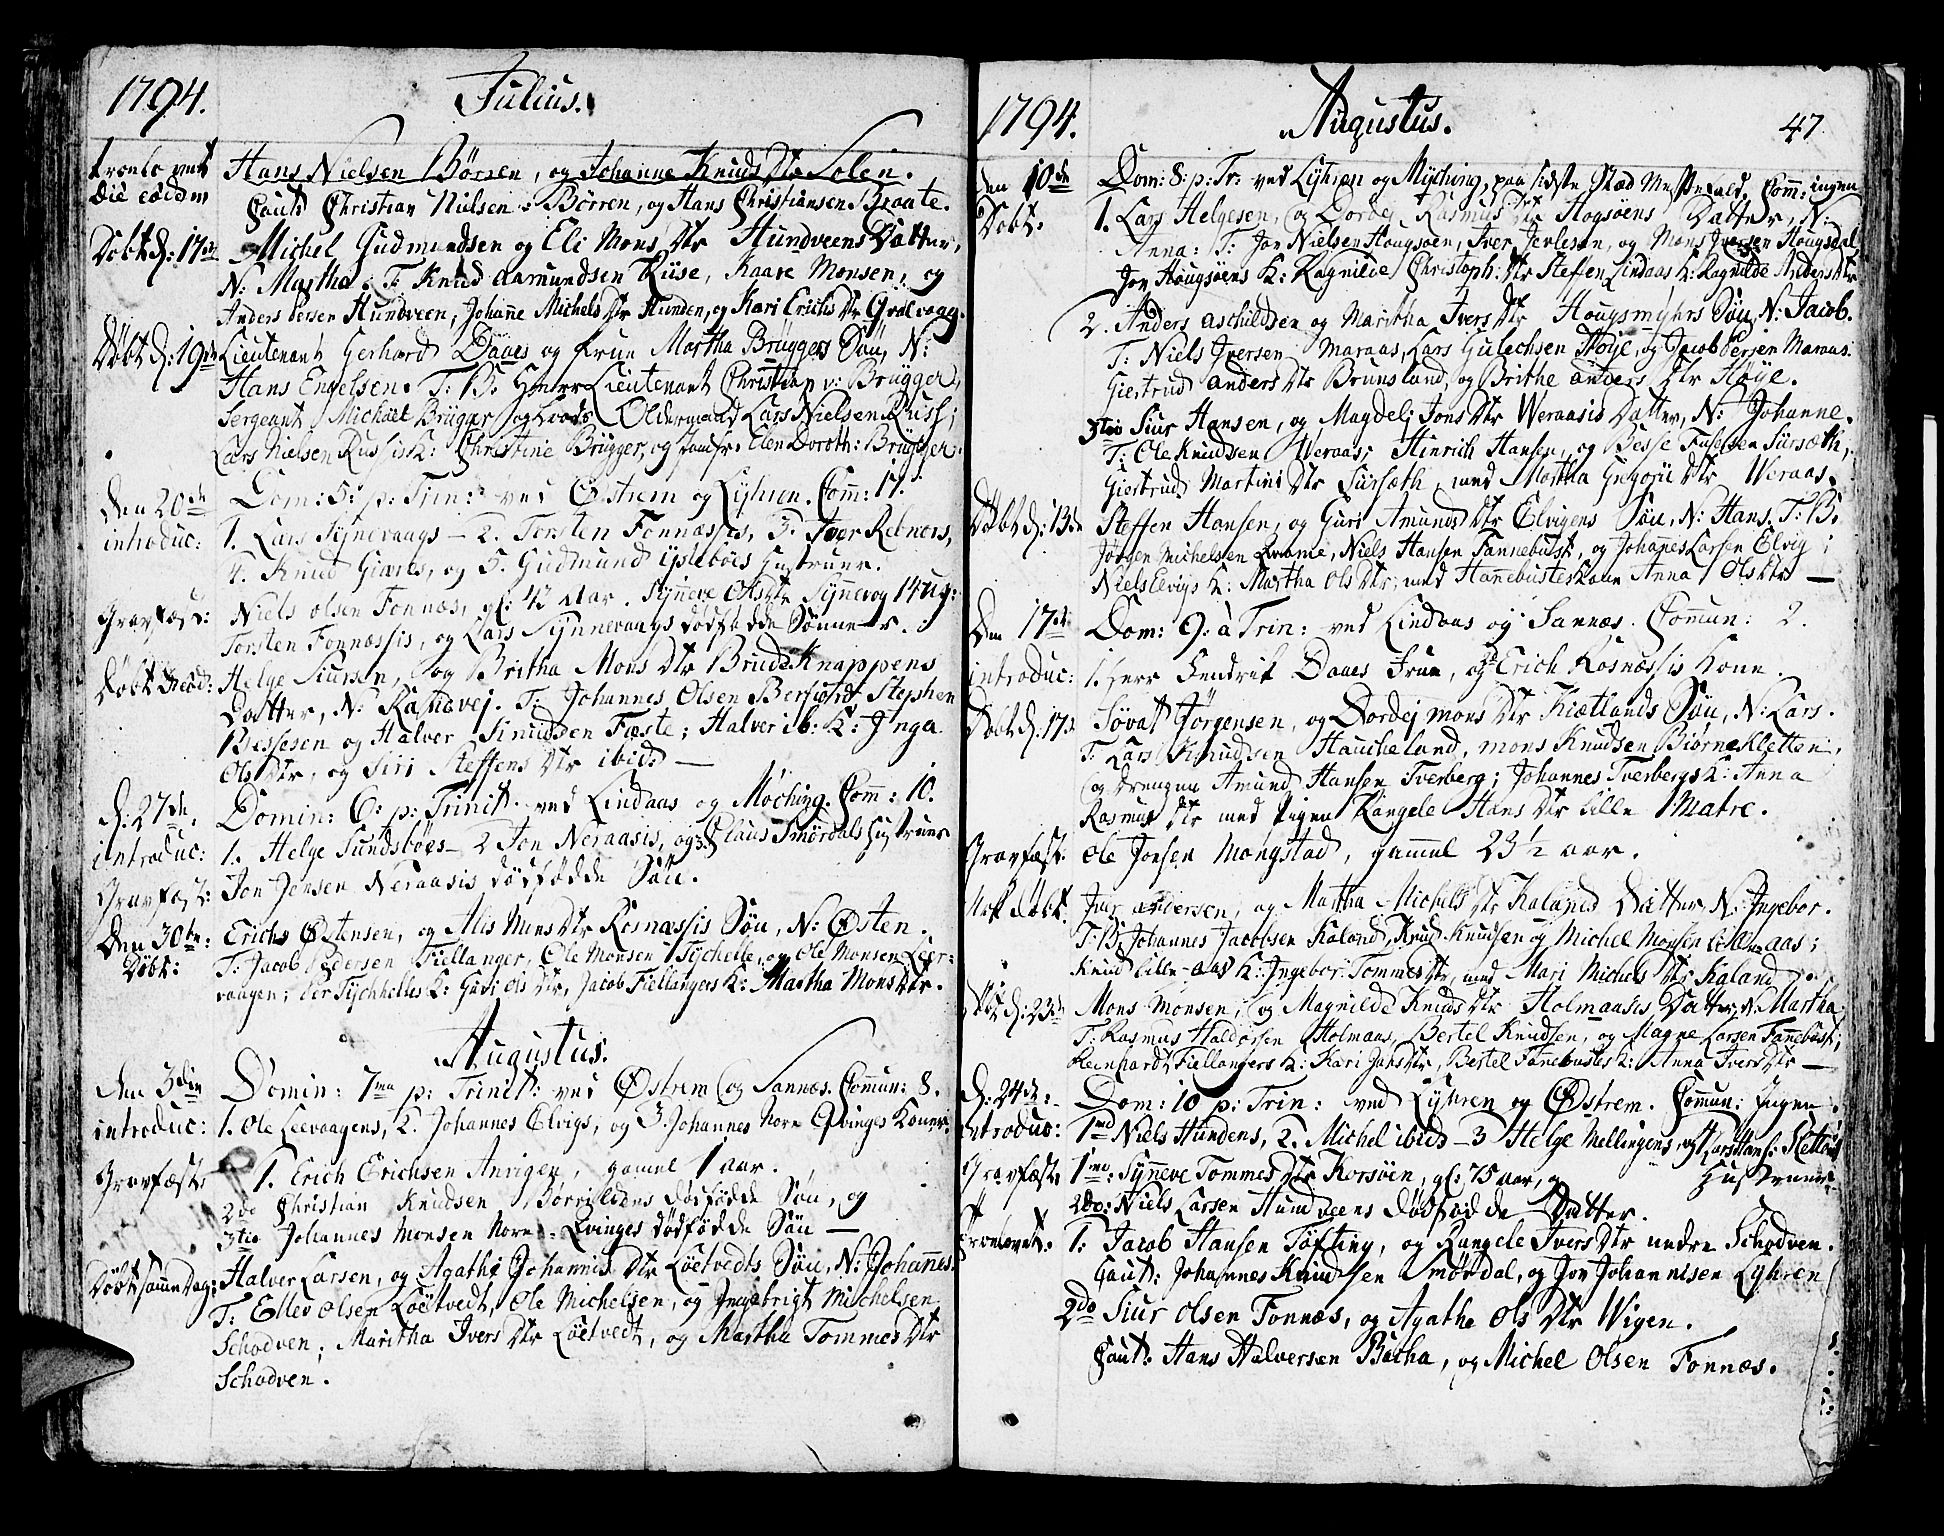 1794. Julius.
Hans Nielsen Börsen, og Johanne Knuds Dtr Solen.
Caut: Christian Nielsen Börren, og Hans Christiansen Braate.
Döbt d: 17de Michel Gudmundsen og Eli Mons Dtr Hundveens Datter,
N: Martha. T: Knud Aamundsen Riise, Kaare Monsen, og
Anders Persen Hundveen, Johane Michels Dtr Hunden, og Kari Erichs Dtr
Döbt d: 19de Lieutenant Gerhard Daaes og Frue Martha Brüggers Sön, N:
Hans Engelsen. T: B. Herr Lieutenant Christian v: Brügger,
Sergeant Michael Brügger og Lods Oldermand Lars Nielsen Russ;
Lars Nielsen Russis K: Christine Brügger, og Jomfr: Elen Doroth: Brügger.
Den 20de Dom: 5: p: Trin: ved Östrem og Lyhren. Comm: 17.
introduc: 1. Lars Synevaags – 2. Torsten Fonnæssis, 3. Iver Rebnors,
4. Knud Giæres, og 5. Gudmund Hustruer.
Gravfæst: Niels Olsen Fonnæs, gl: 42 Aar. Synneve Ols Dtr Synnevog 14 Ug:
Torsten Fonnæssis, og Lars Synnevaags dödfödde Sönner.
Döbt Helge Siursen, og Britha Mons Dtr BrudeKnappens
Datter, N: Randvej. T: Johannes Olsen Stephen
Bessesen og Halver Knudsen Fæste; Halver ib: K: Inga
Ols Dtr, og Siri Steffens Dtr ibid: —
d: 27de Domin: 6: p: Trinit: ved Lindaas og Möching. Comm: 10.
introduc: 1. Helge Sundsböes – 2 Jon Neraasis, og 3. Claus Smördals Hustruer
Gravfæst: Jon Jensen Neraasis dödfödde Sön.
Den 30te: Erich Östensen, og Alis Mons Dtr Rosnæssis Sön, N: Östen.
Döbt: T: Jacob Pedersen Fiellanger, Ole Monsen Tychelle, og Ole Monsen Leer-
vaagen; Per Tychhelles K: Guri Ols Dtr, Jacob Fiellangers K: Martha Mons Dtr.
Augustus.
den 3die Domin: 7ma p: Trinit: ved Östrem og Sannæs. Commun: 8.
introduc: 1. Ole Leervaagens, 2. Johannes Elvigs, og 3. Johannes Nore Qvinges Koner.
Gravfæst: 1. Erich Erichsen Anrigen, gamel 1 Aar.
2do Christian Knudsen dödfödde Sön, og
3tio Johannes Monsen Nore-Qvinges dödfödde Sön —
Döbt samme Dag: Halver Larsen, og Agathe Johannis Dtr Löetvedts Sön, N: Johannes.
T: Ellev Olsen Löetvedt, Ole Michelsen, og Ingebrigt Michelsen
Schodven; Maritha Ivers Dtr Löetvedt, og Martha Tommes Dtr
Schodven.
1794. Augustus. 47
den 10de Dom: 8: p: Tr: ved Lyhren og Myching, paa sidste Stæd Messefald. Comm: ingen
Döbt. 1. Lars Helgesen, og Dordej Rasmus Dtr Hogsöens Datter, N:
Anna: T: Jon Nielsen Hougsöen, Iver Jerlesen, og Mons Iversen Hougsdal
Jon Hougsöens K: Ragnilde Christoph: Dtr Steffen Lindaas K: Ragnilde Anders Dtr
2. Anders Aschildsen og Maritha Ivers Dtr Hougsmyhrs Sön, N: Jacob.
T: Niels Iversen Maraas, Lars Gulechsen Höye, og Jacob Persen Maraas.
Giertrud Anders Dtr Brunsland, og Brithe Anders Dtr Höye.
3tio Siur Hansen, og Magdel: Jons Dtr Weraasis Datter, N: Johanne.
T: Ole Knudsen Weraas, Hinrich Hansen, og Besse Sursæth;
Giertrud Martini Dtr Sursæth, med Martha Gregorii Dtr Weraas.
Döbt d: 13de Steffen Hansen, og Guri Amunds Dtr Elvigens Sön, N: Hans. T: B:
Jörgen Michelsen Qvame, Niels Hansen Fannebust, og Johanes Larsen Elvig;
Niels Elvigs K: Martha Ols Dtr, med Anna Ols Dtr —
Den 17de Dom: 9: a Trin: ved Lindaas og Sannæs. Commun: 2.
introduc: 1. Herr Hendrik Daaes Frue, og 2. Erich Rosnæssis Kone.
Döbt d: 17. Sövat Jörgensen, og Dordej Mons Dtr Kiætlands Sön, N: Lars.
T: Lars Knudsen Haucheland, Mons Knudsen Biörnekletten,
og Drengen Amund Hansen Tverberg; Johannes Tverbergs K: Anna
Rasmus Dtr med Pigen Rangele Hans Dtr Lille Matre.
Gravfæst: Ole Jensen Mongstad, gammel 23½ Aar.
Döbt. Iver Andersen, og Martha Michels Dtr Kalands Datter, N: Ingebor.
T: B: Johannes Jacobsen Kaland, Knud Knudsen og Michel Monsen Lille-Aas;
Knud Lille-Aas K: Ingebor Tommes Dtr, med Mari Michels Dtr Kaland
Döbt d: 23de Mons Monsen, og Magnilde Knuds Dtr Holmaasis Datter, N: Martha
T: Rasmus Haldorsen Holmaas, Bertel Knudsen, og Magne Larsen Fannebust;
Reinhardt Fiellangers K: Kari Jans Dtr, Bertel Fannebustes K: Anna Ivers Dtr —
d: 24de: Dom: 10 p: Trin: ved Lyhren og Östrem. Comun: Ingen.
Introduc: 1mo Niels Hundens, 2. Michel ibid – 3 Helge Mellingens, og 4. Lars Hans: Hustruer.
Gravfæst: 1mo: Synneve Tommes Dtr Korsöen, gl: 75 Aar, og
2do: Niels Larsen Hundveens dödfödde Datter.
Trolovet: 1: Jacob Hansen Töfting, og Rangele Ivers Dtr nedre Schodven.
Caut: Johannes Knudsen Smördal, og Jon Johannisen Lyhren
2do Siur Olsen Fonnæs, og Agathe Ols Dtr Wigen.
Caut: Hans Halversen Bacha, og Michel Olsen Fonnæs.